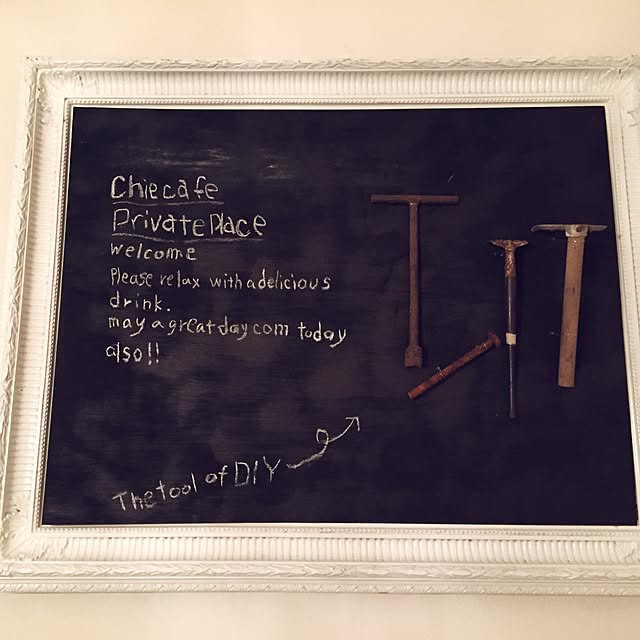 Chiecafe
Private Place
welcome
Please relax with a delicious
drink.
may a great day com today
also!!
The tool of DIY